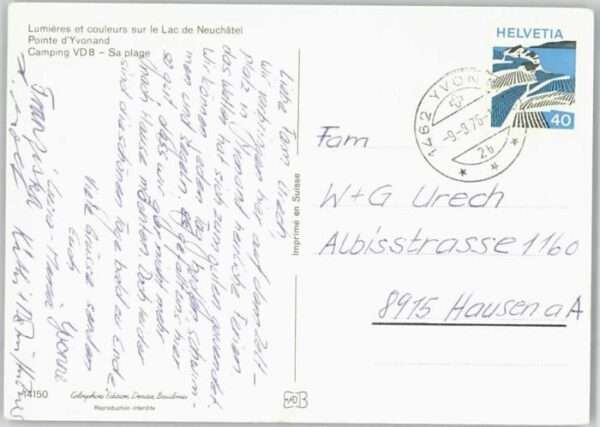 Lumières et couleurs sur le Lac de Neuchâtel
Pointe d'Yvonand
Camping VD 8 – Sa plage
Liebe Fam. Urech
Wir verbringen hier auf dem Zelt-
platz in Yvonand herrliche Ferien
das Wetter hat sich zum guten gewendet.
Wir können jeden Tag baden schwim-
men und segeln. Es gefällt uns hier
so gut dass wir gar nicht mehr
nach Hause möchten. Doch leider
sind die schönen Tage bald zu Ende.
Viele Grüsse senden
Euch
Yvonne
Franziska
14150
Edition
Reproduction interdite
Imprimé en Suisse
HELVETIA
40
1462 YVON
-9-9.76-
2b
Fam
W+G Urech
Albisstrasse 1160
8915 Hausen a A